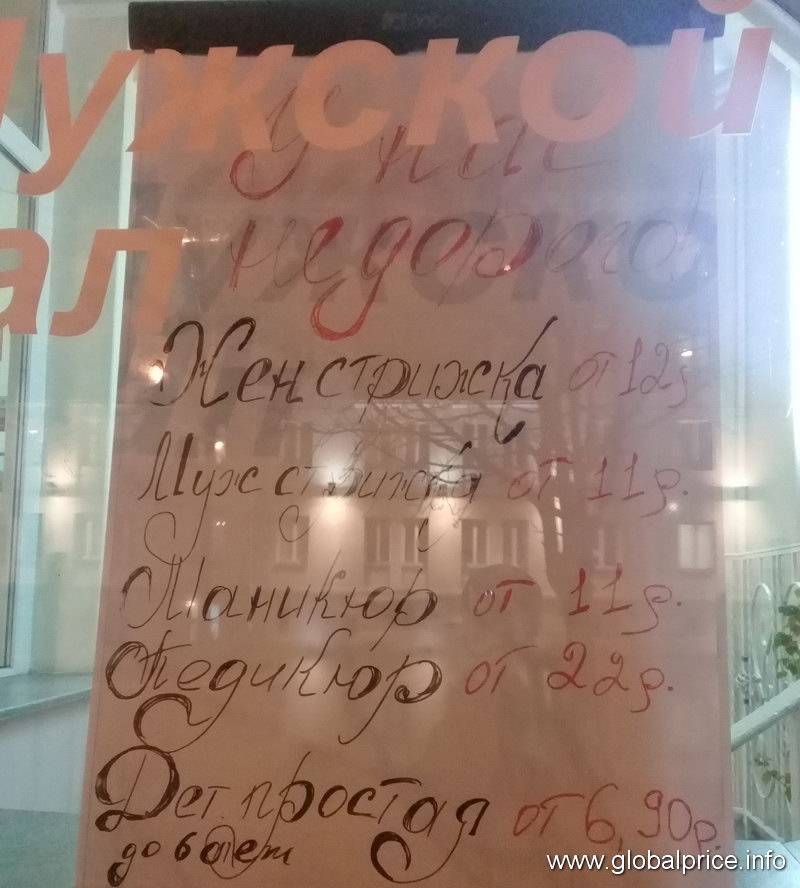 Мужской
У нас
недорого!
зал
Жен стрижка от 12р
Муж стрижка от 11р.
Маникюр от 11р.
Педикюр от 22р.
Дет. простая от 6,90р.
до 6 лет
www.globalprice.info